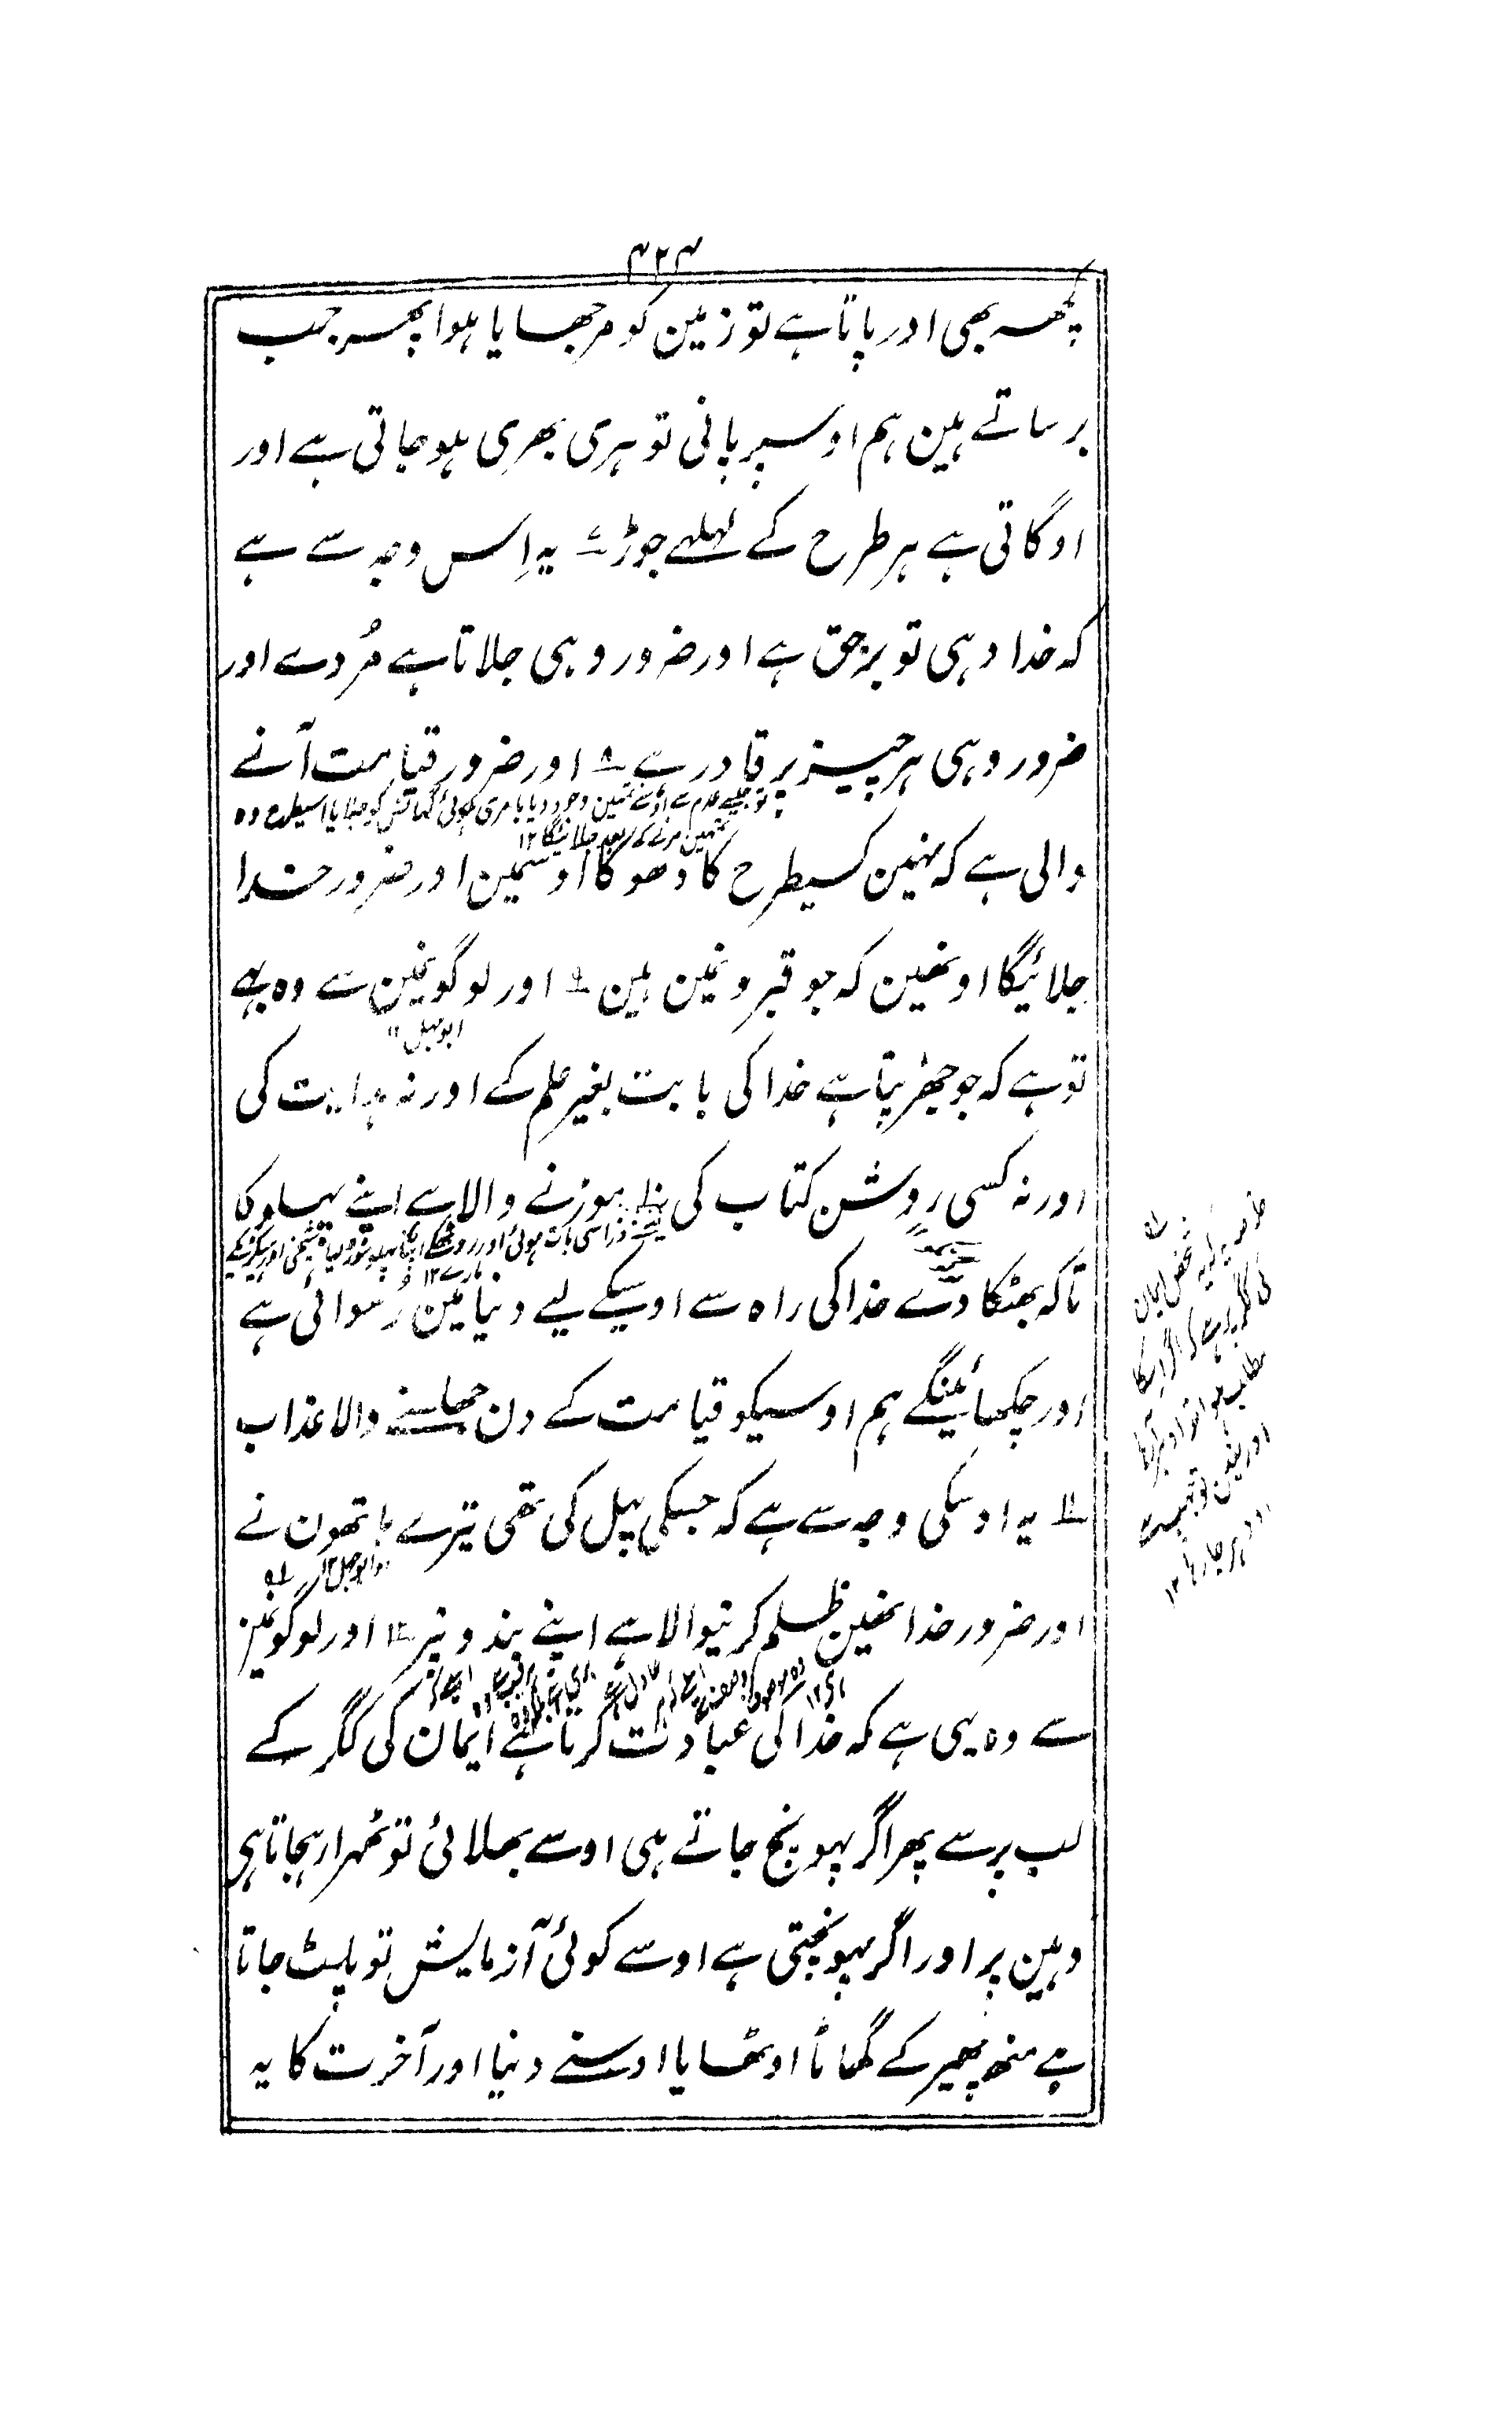 ۴۲۳
کچھہ بھی اور پاتا ہے تو زمین کو مرجھایا ہوا پھر جب
برساتے ہین ہم اوسپر پانی تو ہری بھری ہوجاتی ہے اور
اوگاتی ہے ہر طرح کے لہلہے جوڑے یہ اِس وجہ سے ہے
کہ خدا وہی تو برحق ہے اور ضرور وہی جلاتا ہے مُردے اور
ضرور وہی ہر چیز پر قادر ہے ۸ اور ضرور قیامت آنے
تو جیسے عدم سے اوسنے تمھین وجود دیا یا مری ہوئی گھانس کو جلایا اسیطرح وہ
تمھین مرنے کے بعد جلائیگا ۱۲
والی ہے کہ نہین کسیطرح کا دھوکا اوسمین اور ضرور خدا
جلائیگا اونھین کہ جو قبرونمین ہین ۹ اور لوگونمین سے وہ بھی
ابوجہل ۱۲
تو ہے کہ جو جھڑپتا ہے خدا کی بابت بغیر علم کے اور نہ ہدایت کی
اور نہ کسی روشن کتاب کی ۱۰ موڑنے والا ہے اپنے پہلو کا
ذرا سی بات ہوئی اور
مارے ۱۲
تاکہ بھٹکا دے خدا کی راہ سے اوسیکے لیے دنیا مین رُسوائی ہے
اور چکھائینگے ہم اوسیکو قیامت کے دن جھلسنے والا عذاب
۱۱ یہ اوسکی وجہ سے ہے کہ جسکی پہل کی تھی تیرے ہاتھون نے
او ابوجہل ۱۲
اور ضرور خدا نھین ظلم کرنیوالا ہے اپنے بندونپر ۱۲ اور لوگونمین
سے وہ بھی ہے کہ خدا کی عبادت کرتا ہے ایمان کی گگر کے
لب پر سے پھر اگر پہونچ جاتے ہی اوسے بھلائی تو ٹھہرا رہجاتا ہی
وہین پر اور اگر پہونچتی ہے اوسے کوئی آزمایش تو پلٹ جاتا
ہے منھ پھیر کے گھاٹا اوٹھایا اوسنے دنیا اور آخرت کا یہ
شخص ایمان
کی گگر پر ہے کہ اگر اوسکا
مطلب ہوا تو اودھر آرہا
اور نھین تو
اودہر جا رہا ۱۲